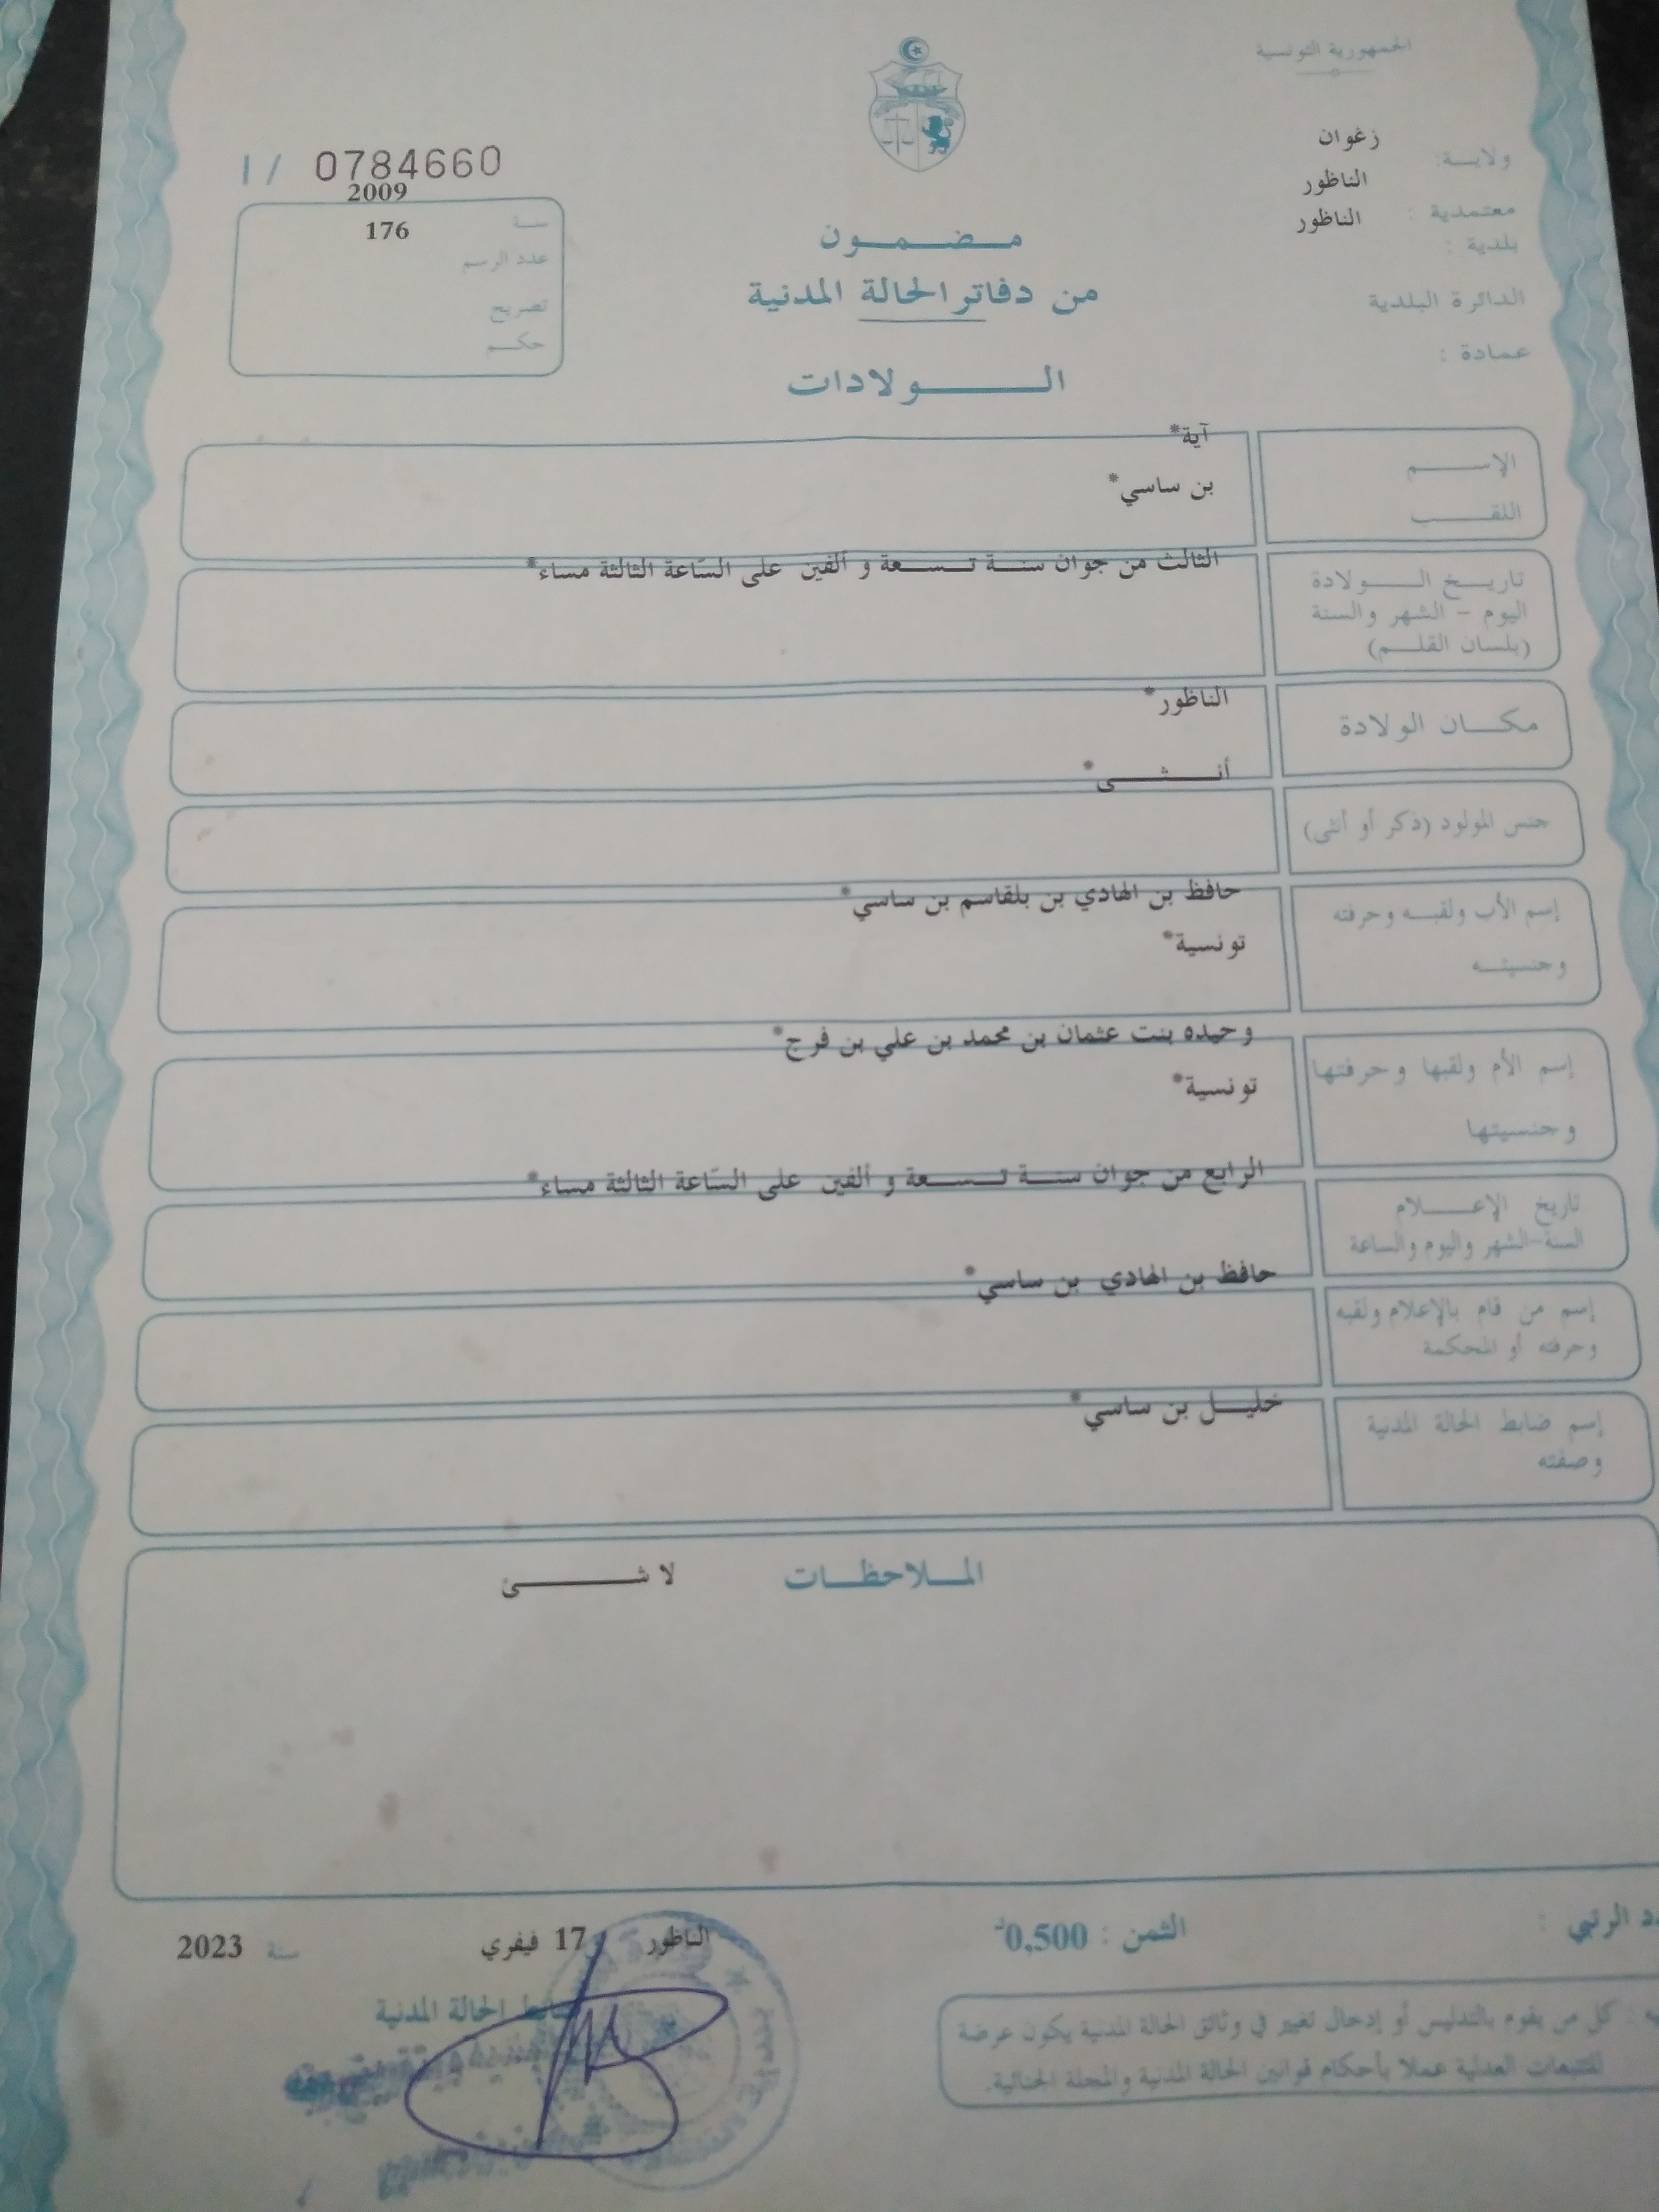 الجمهورية التونسية
ولايـــة: زغوان
معتمدية : الناظور
بلدية : الناظور
الدائرة البلدية
عمادة :
I / 0784660
2009
سنـة
176
عدد الرسم
تصريح
حكـم
مـضـمـون
من دفاتر الحالة المدنية
الـــولادات
الإســـم
آية*
اللقـــب
بن ساسي*
تاريـخ الـــولادة
اليوم - الشهر والسنة
(بلسان القلـم)
الثالث من جوان سنـة تـسـعة و ألفين على السّاعة الثالثة مساء*
مكـــان الولادة
الناظور*
جنس المولود (ذكر أو أنثى)
أنــثــى*
إسم الأب ولقبـه وحرفته
حافظ بن الهادي بن بلقاسم بن ساسي*
وجنسيتـه
تونسية*
إسم الأم ولقبها وحرفتها
وحيده بنت عثمان بن محمد بن علي بن فرج*
وجنسيتها
تونسية*
تاريخ الإعــلام
السنة-الشهر واليوم والساعة
الرابع من جوان سنـة تـسـعة و ألفين على السّاعة الثالثة مساء*
إسم من قام بالإعلام ولقبه
وحرفته أو المحكمة
حافظ بن الهادي بن ساسي*
إسم ضابط الحالة المدنية
وصفته
خليـل بن ساسي*
المـلاحظـات
لا شــــئ
الرتبي :
الثمن : 0,500د
الناظور 17 فيفري سنة 2023
ضابط الحالة المدنية
كل من يقوم بالتدليس أو إدخال تغيير في وثائق الحالة المدنية يكون عرضة
للتتبعات العدلية عملا بأحكام قوانين الحالة المدنية والمجلة الجنائية.